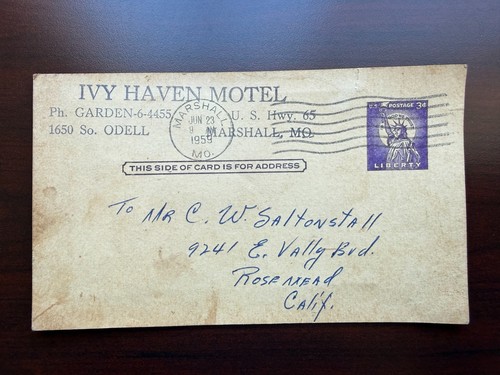 IVY HAVEN MOTEL
Ph. GARDEN-6-4455 U. S. Hwy. 65
1650 So. ODELL MARSHALL, MO.
MARSHALL
JUN 23
9 AM
1959
MO.
U.S. POSTAGE 3¢
LIBERTY
THIS SIDE OF CARD IS FOR ADDRESS
To Mr C. W. Saltonstall
9241 E. Vally Bvd.
Rosemead
Calif.